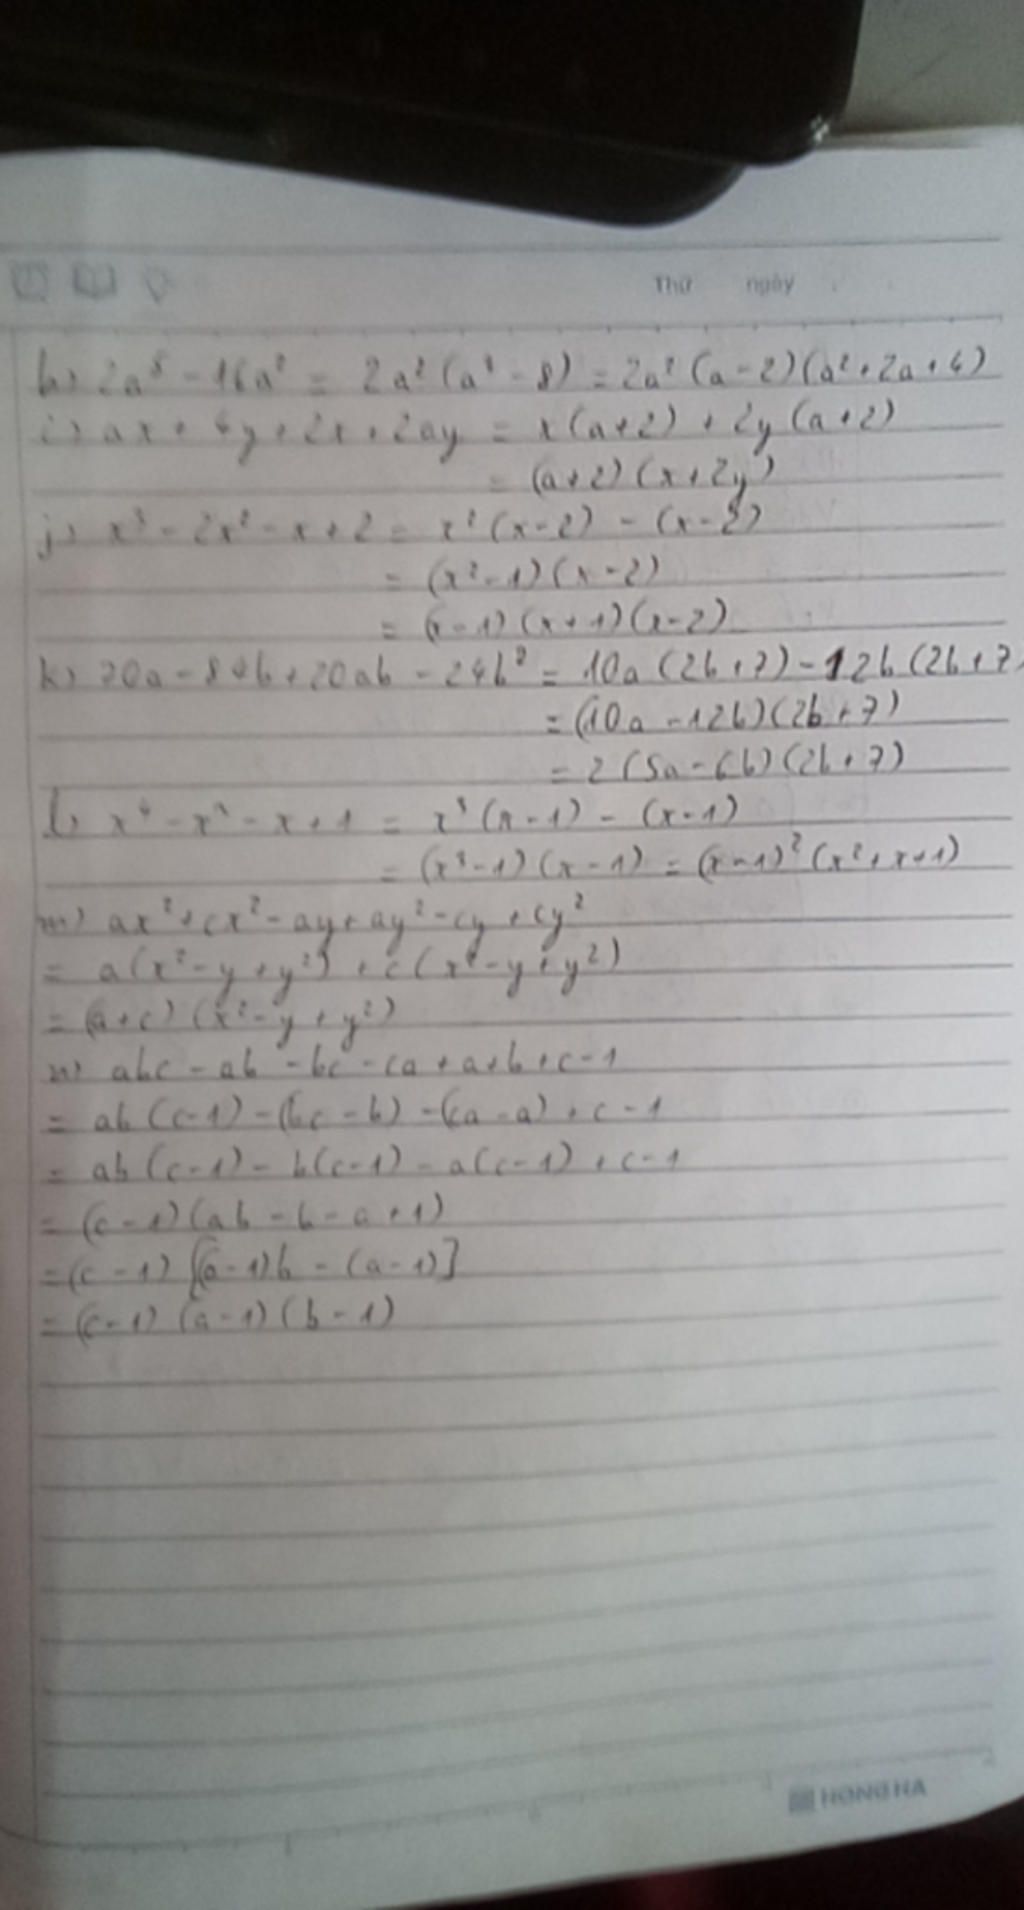 Thứ ngày
h) 2a⁵ - 16a² = 2a² (a³ - 8) = 2a² (a - 2) (a² + 2a + 4)
i) ax + 4y + 2x + 2ay = x(a+2) + 2y (a+2)
= (a+2) (x+2y)
j) x³ - 2x² - x + 2 = x² (x-2) - (x-2)
= (x² - 1) (x - 2)
= (x-1) (x+1) (x-2)
k) 70a - 84b + 20ab - 24b² = 10a (2b+7) - 12b (2b+7)
= (10a - 12b) (2b+7)
= 2 (5a - 6b) (2b+7)
l) x⁴ - x³ - x + 1 = x³ (x-1) - (x-1)
= (x³-1) (x-1) = (x-1)² (x²+x+1)
m) ax² + cx² - ay + ay² - cy + cy²
= a(x² - y + y²) + c(x² - y + y²)
= (a+c) (x² - y + y²)
n) abc - ab - bc - ca + a + b + c - 1
= ab (c-1) - (bc - b) - (ca - a) + c - 1
= ab (c-1) - b(c-1) - a(c-1) + c-1
= (c-1) (ab - b - a + 1)
= (c-1) [(a-1)b - (a-1)]
= (c-1) (a-1) (b-1)
HONG HA